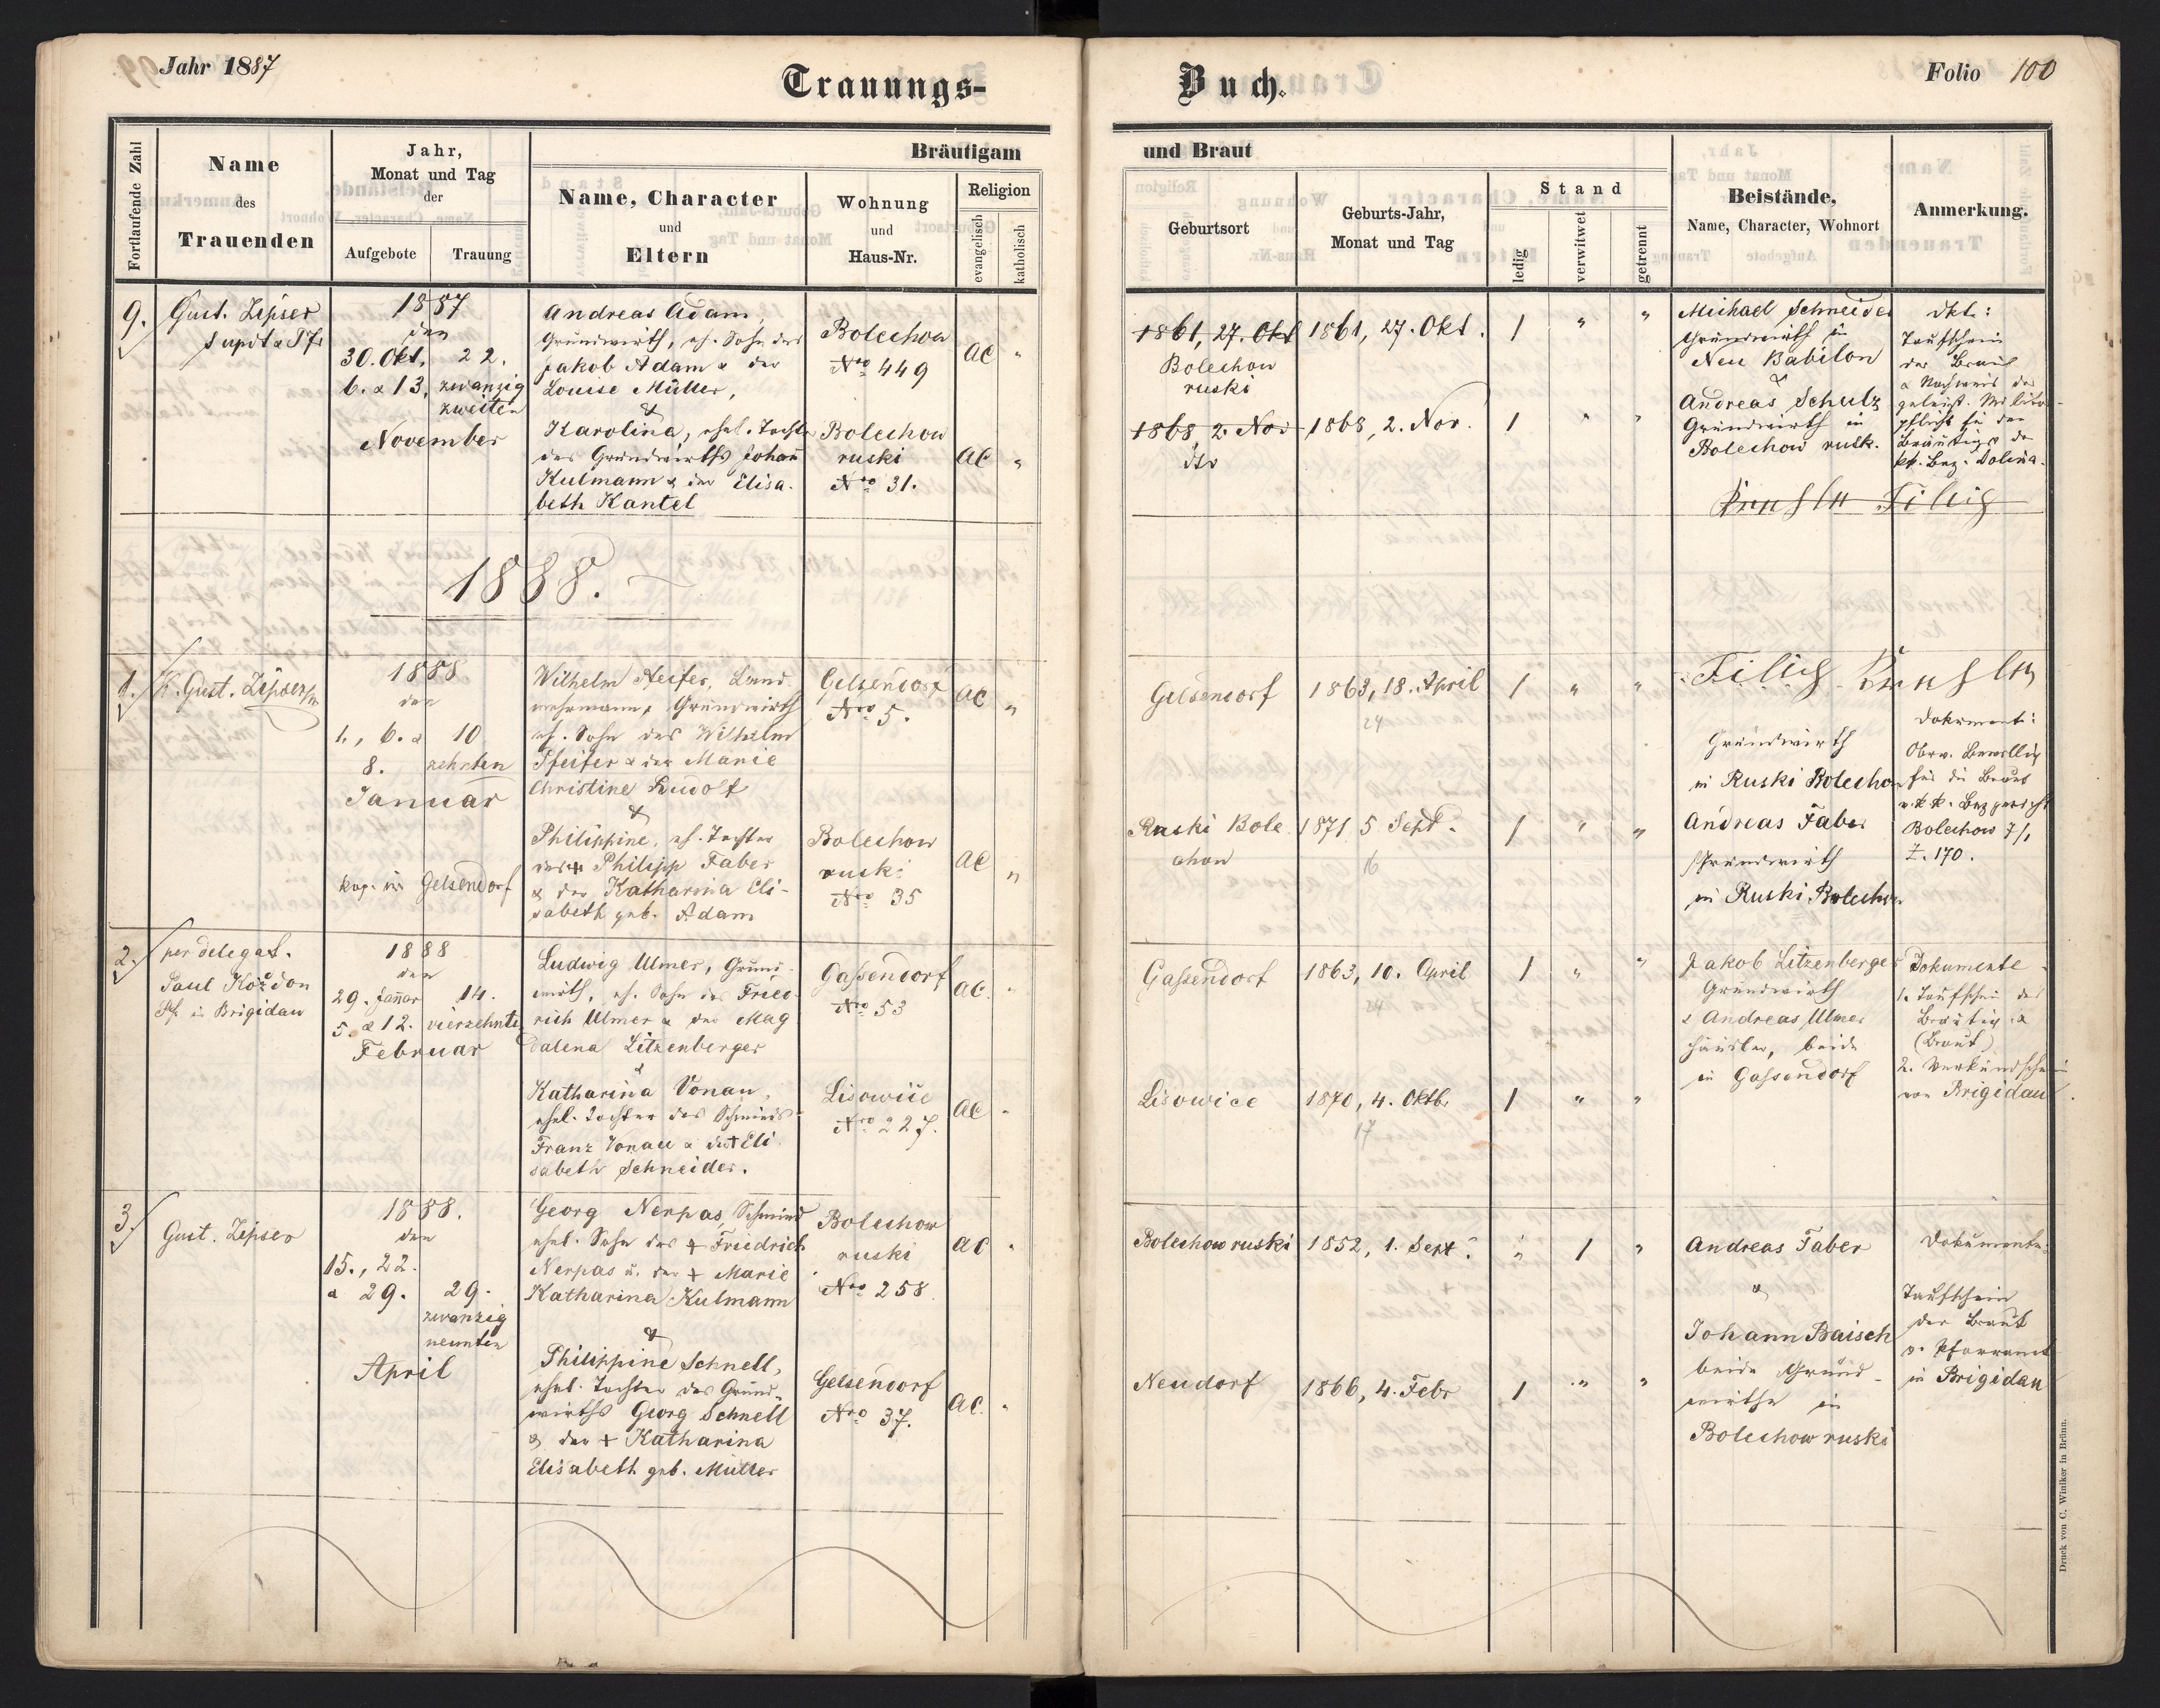 Jahr 1887
Trauungs-
Buch.
Folio 100
Fortlaufende Zahl
Name
des
Trauenden
Jahr,
Monat und Tag
der
Aufgebote
Trauung
Bräutigam
und Braut
Name, Character
und
Eltern
Wohnung
und
Haus-Nr.
Religion
evangelisch
katholisch
Geburtsort
Geburts-Jahr,
Monat und Tag
Stand
ledig
verwitwet
getrennt
Beistände,
Name, Character, Wohnort
Anmerkung.
9.
Gust. Zipser
Supdt & Pfr
1887
den
30. Okt. 22.
6. & 13. zwanzig
zweiten
November
Andreas Adam,
Grundwirth, eh. Sohn des
Jakob Adam & der
Louise Müller,
&
Karolina, ehel. Tochter
des Grundwirths Johann
Kulmann & der Elisa-
beth Kantel
Bolechow
Nro 449
AC "
Bolechow
ruski
Nro 31.
AC "
1861, 27. Okt
Bolechow
ruski
1861, 27. Okt.
1 " "
1868, 2. Nov
dto
1868, 2. Nov.
1 " "
Michael Schneider
Grundwirth in
Neu Babilon
&
Andreas Schulz
Grundwirth in
Bolechow rusk.
dkt:
Taufschein
der Braut
& Nachweis der
geleist. Militär-
pflicht für den
Bräutig. de
kk. Bez. Dolina.
1888.
1.
K. Gust. Zipser
1888
den
1., 6. & 10
8. zehnten
Januar
kop. in Gelsendorf
Wilhelm Pfeifer, Land
wehrmann, Grundwirth
eh. Sohn des Wilhelm
Pfeifer & der Marie
Christine Rudolf
&
Philippine, eh. Tochter
des + Philipp Faber
& der Katharina Eli-
sabeth geb. Adam
Gelsendorf
Nro 5.
AC "
Bolechow
ruski
Nro 35
AC "
Gelsendorf
1863, 18. April
24
1 " "
Ruski Bole
chow
1871 5 Sept.
16
1 " "
Grundwirth
in Ruski Bolechow
Andreas Faber
Grundwirth
in Ruski Bolechow
Dokument:
Oberv. Bewillig
für die Braut
v. k. k. Bez gericht
Bolechow 7/1
Z. 170.
2.
per delegat.
Paul Kożdon
Pf. in Brigidau
1888
den
29. Jannar 14.
5. & 12. vierzehnte
Februar
Ludwig Ulmer, Grund-
wirth, eh. Sohn des Fried-
rich Ulmer & der Mag
dalena Litzenberger
&
Katharina Vonau,
ehel. Tochter des Schmieds
Franz Vonau & der + Eli
sabeth Schneider.
Gassendorf
Nro 53
AC. "
Lisowice
Nro 227.
AC "
Gassendorf
1863, 10. April
24
1 " "
Lisowice
1870, 4. Oktb.
17
1 " "
Jakob Litzenberger
Grundwirth
& Andreas Ulmer
Häusler, beide
in Gassendorf
Dokumente
1. Taufschein des
Bräutig. &
(Braut)
2. Verkündschein
von Brigidau
3.
Gust. Zipser
1888.
den
15., 22.
& 29. 29.
zwanzig
neunten
April
Georg Nerpas, Schmied
ehel. Sohn des + Friedrich
Nerpas u. der + Marie
Katharina Kulmann
&
Philippine Schnell,
ehel. Tochter des Grund-
wirths Georg Schnell
& der + Katharina
Elisabeth geb. Müller
Bolechow
ruski
Nro 258
AC "
Gelsendorf
Nro 37.
AC. "
Bolechow ruski
1852, 1. Sept.
" 1 "
Neudorf
1866, 4. Febr
1 " "
Andreas Faber
&
Johann Baisch
beide Grund-
wirthe in
Bolechow ruski
Dokumente:
Taufschein
der Braut
v. Pfarramt
in Brigidau
Druck von C. Winiker in Brünn.